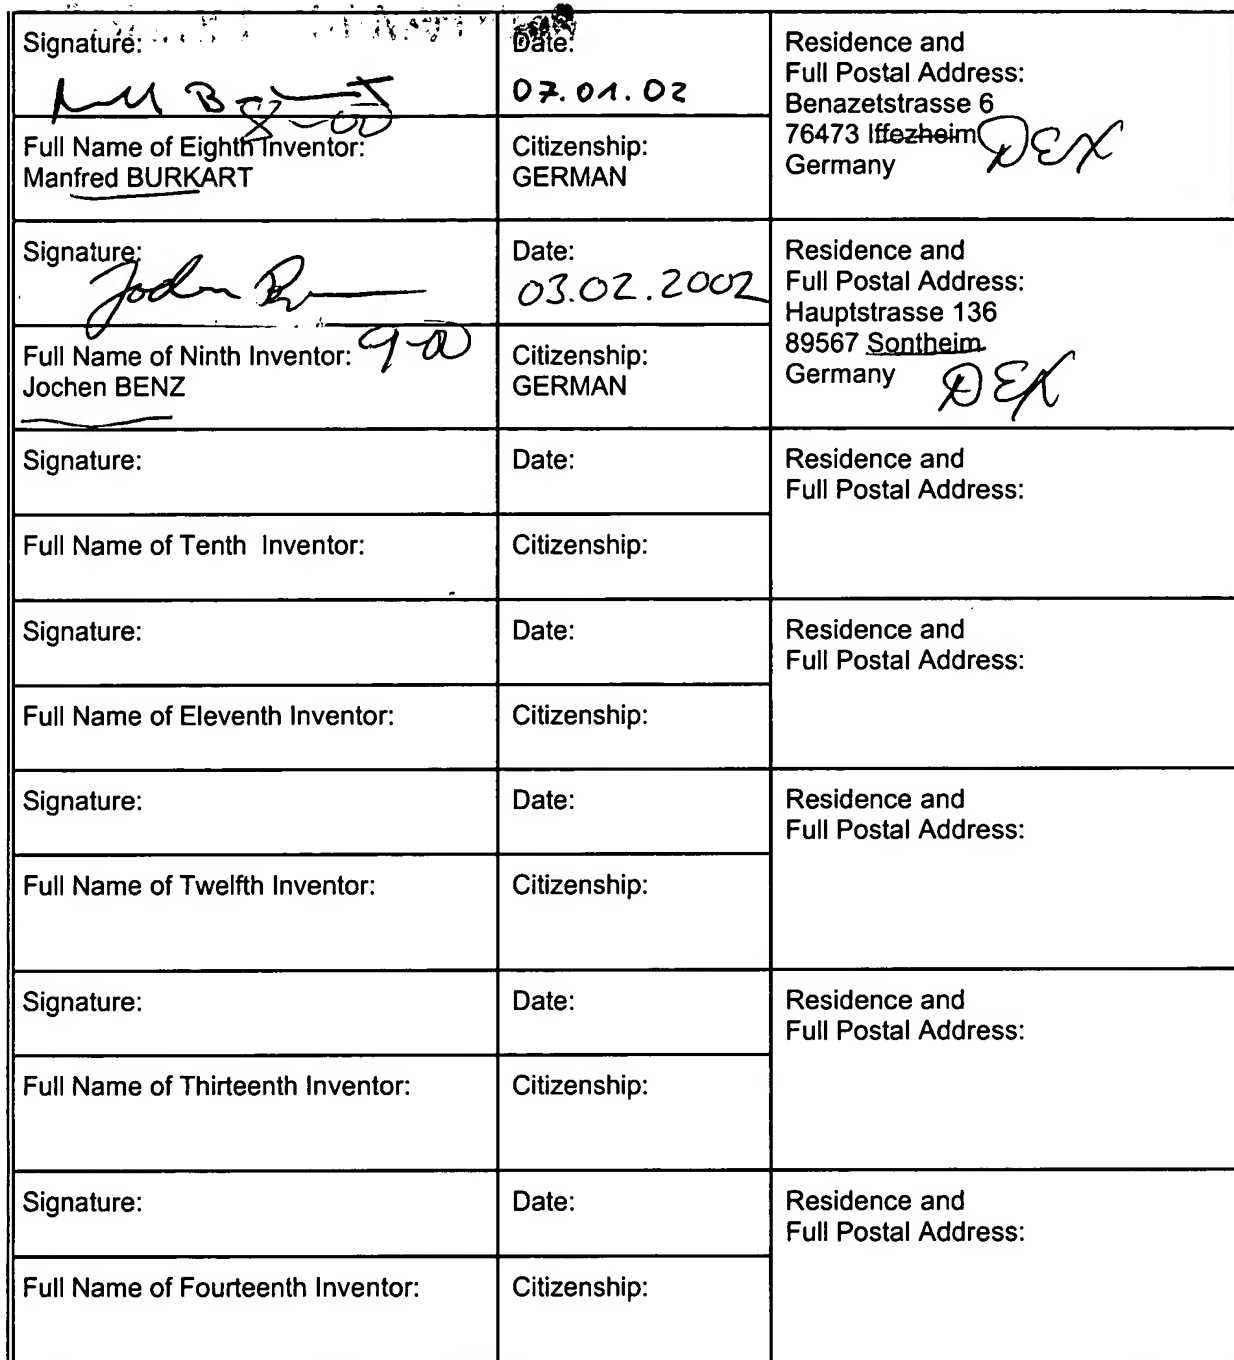 Signature:
Date:
07.01.02
Residence and
Full Postal Address:
Benazetstrasse 6
76473 Iffezheim DEX
Germany
8-00
Full Name of Eighth Inventor:
Manfred BURKART
Citizenship:
GERMAN
Signature:
Date:
03.02.2002
Residence and
Full Postal Address:
Hauptstrasse 136
89567 Sontheim
Germany DEX
9-00
Full Name of Ninth Inventor:
Jochen BENZ
Citizenship:
GERMAN
Signature:
Date:
Residence and
Full Postal Address:
Full Name of Tenth Inventor:
Citizenship:
Signature:
Date:
Residence and
Full Postal Address:
Full Name of Eleventh Inventor:
Citizenship:
Signature:
Date:
Residence and
Full Postal Address:
Full Name of Twelfth Inventor:
Citizenship:
Signature:
Date:
Residence and
Full Postal Address:
Full Name of Thirteenth Inventor:
Citizenship:
Signature:
Date:
Residence and
Full Postal Address:
Full Name of Fourteenth Inventor:
Citizenship: